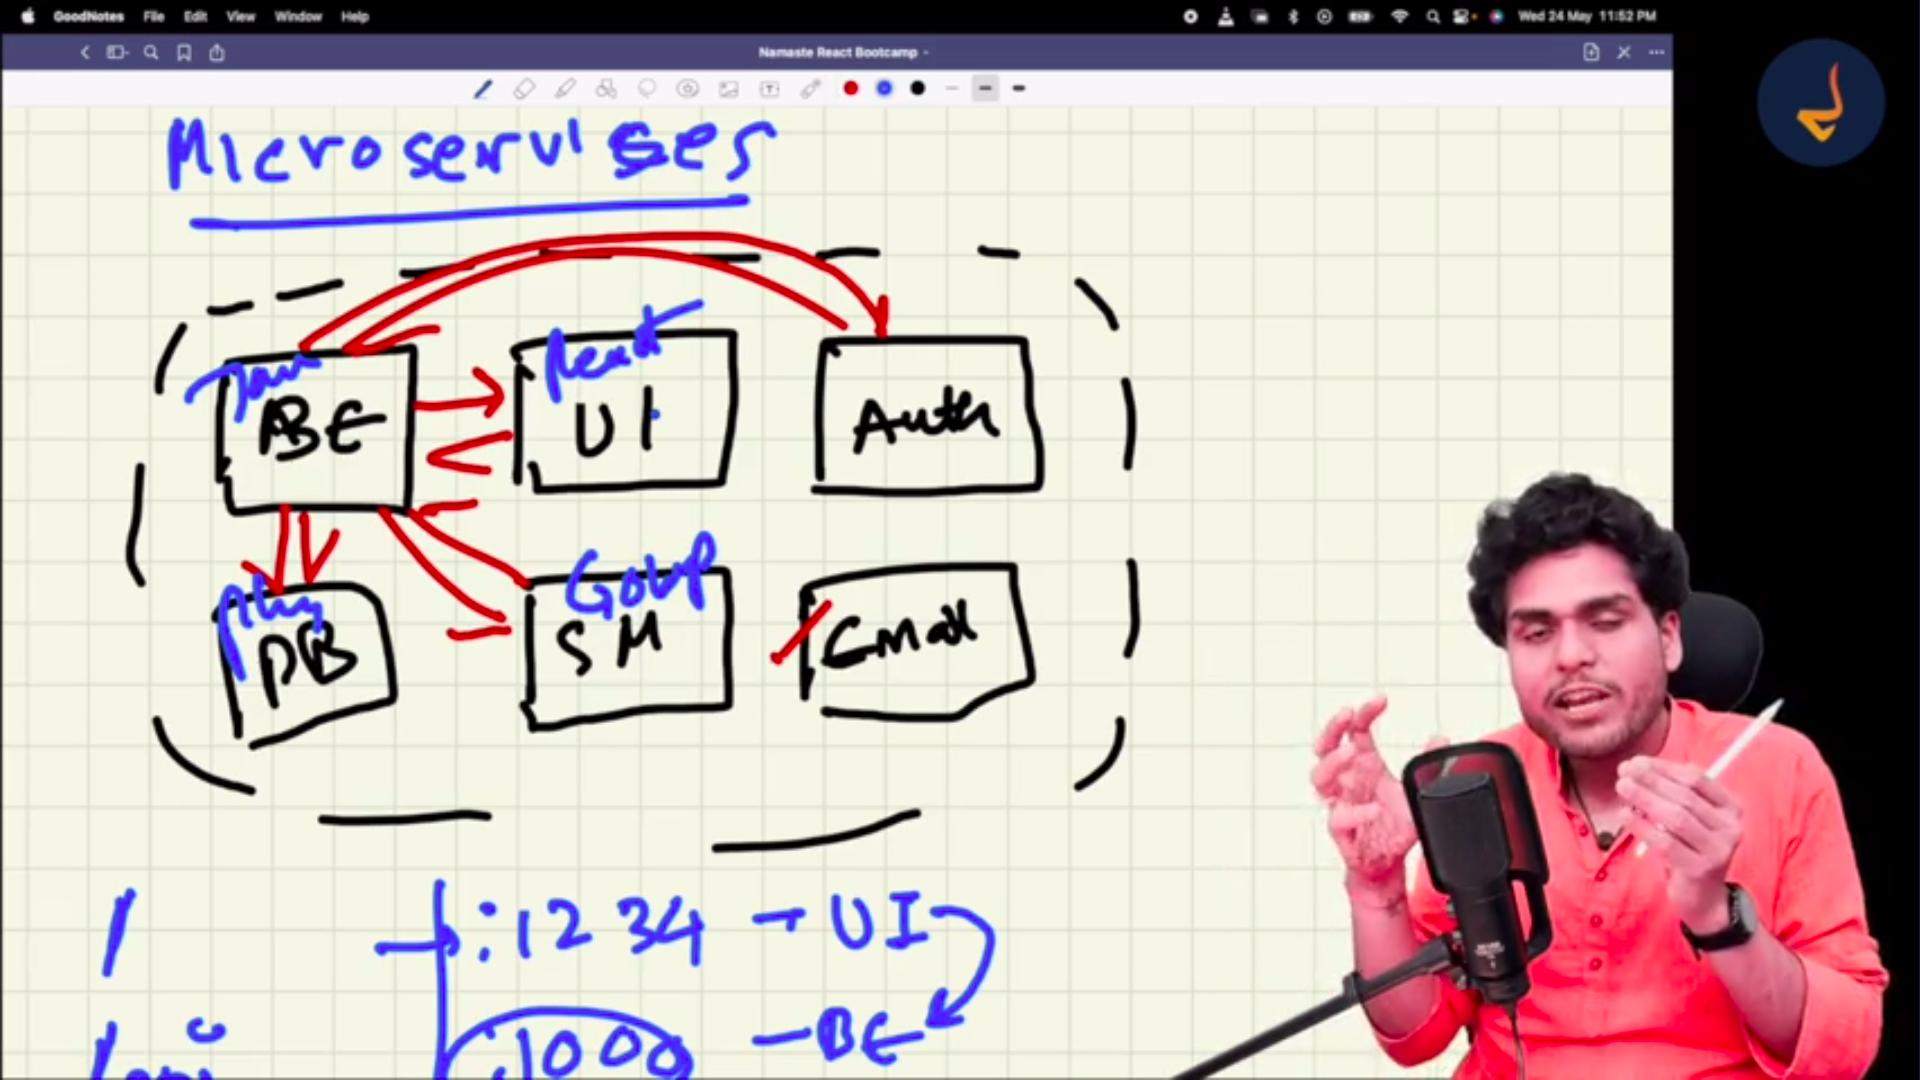 GoodNotes File Edit View Window Help Wed 24 May 11:52 PM
Namaste React Bootcamp
T
Microservises
Java React
BE UI Auth
Golup
DB SM Email
:1234 → UI
:1000 - BE
/api